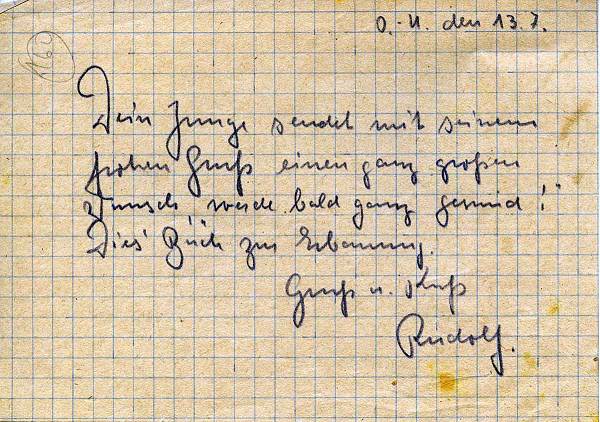 O.-U. den 13.7.
169
Dein Junge sendet mit seinem
frohen Gruß einen ganz großen
Wunsch „werde bald ganz gesund!“
Dies Buch zur Erbauung.
Gruß u. Kuß
Rudolf.